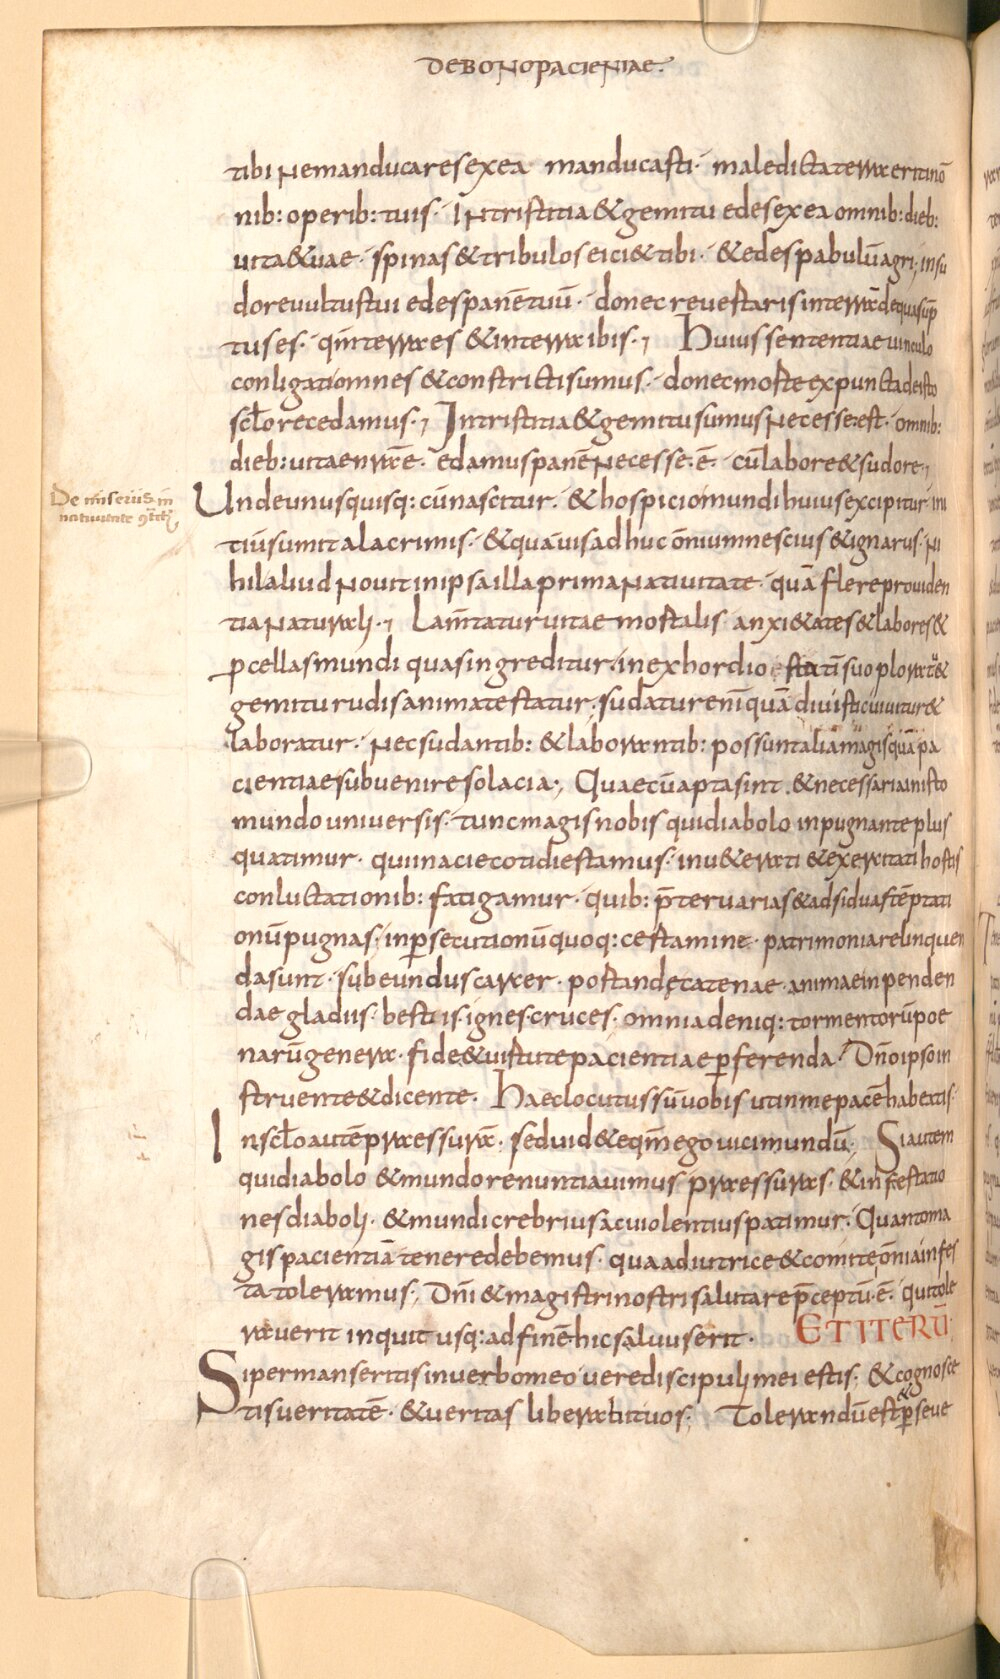 DE BONO PACIENTIAE·
tibi ne manducares ex ea manducasti· maledicta terra erit in om̄
nib: operib: tuis· In tristitia & gemitu edes ex ea omnib: dieb:
uita& uae· spinas & tribulos eici& tibi· & edes pabulū agri; in su
dore uultus tui edes panē tuū· donec reuertaris in terrā de qua sūp
tus es· qm̄ terra es & in terra ibis·, Huius sententiae uinculo
conligati omnes & constricti sumus· donec morte expuncta de isto
sc̄lo recedamus·, In tristitia & gemitu sumus necesse: est· omnib:
dieb: uitae nr̄ae· edamus panē necesse·ē· cū labore & sudore,
De miseriis in
natiuitate
Unde unusquisq: cū nascitur· & hospicio mundi huius excipitur ini
tiū sumit a lacrimis· & quāuis adhuc om̄ium nescius & ignarus· ni
hil aliud nouit in ipsa illa prima natiuitate· quā flere prouiden
tia naturali·, Lam̄tatur uitae mortalis anxi&ates & labores &
p̄cellas mundi quas ingreditur· in exhordio statī suo ploratu &
gemitu rudis anima testatur· sudatur enī quādiu istic uiuitur &
laboratur· nec sudantib: & laborantib: possunt alia magis quā pa
cientiae subuenire solacia·, Quae cū apta sint· & necessaria in isto
mundo uniuersis· tunc magis nobis qui diabolo inpugnante plus
quatimur· qui in acie cotidie stamus· inu&erati & exercitati hostis
conluctationib: fatigamur· quib: p̄ter uarias & adsiduas tēptati
onū pugnas· in p̄secutionū quoq: certamine· patrimonia relinquen
da sunt· subeundus carcer· portandę catenae· animae inpenden
dae gladius· bestiis· ignes cruces· omnia deniq: tormentorū poe
narū genera· fide & uirtute pacientiae p̄ferenda· Dn̄o ipso in
struente & dicente· Haec locutus sū uobis ut in me pacē habeatis·
In sc̄lo autē praessurā· sed uid&e qm̄ ego uici mundū·, Si autem
qui diabolo & mundo renuntiauimus praessūras· & infestatio
nes diaboli· & mundi crebrius ac uiolentius patimur· Quanto ma
gis pacientiā tenere debemus· qua adiutrice & comite om̄ia infes
ta toleramus; Dn̄i & magistri nostri salutare p̄ceptū·ē· qui tole
rauerit inquit usq: ad finē hic saluus erit· ET ITERŪ·
Si permanseritis in uerbo meo uere discipuli mei estis; & cognosce
tis ueritatē· & ueritas liberabit uos; Tolerandū est & p̄seue